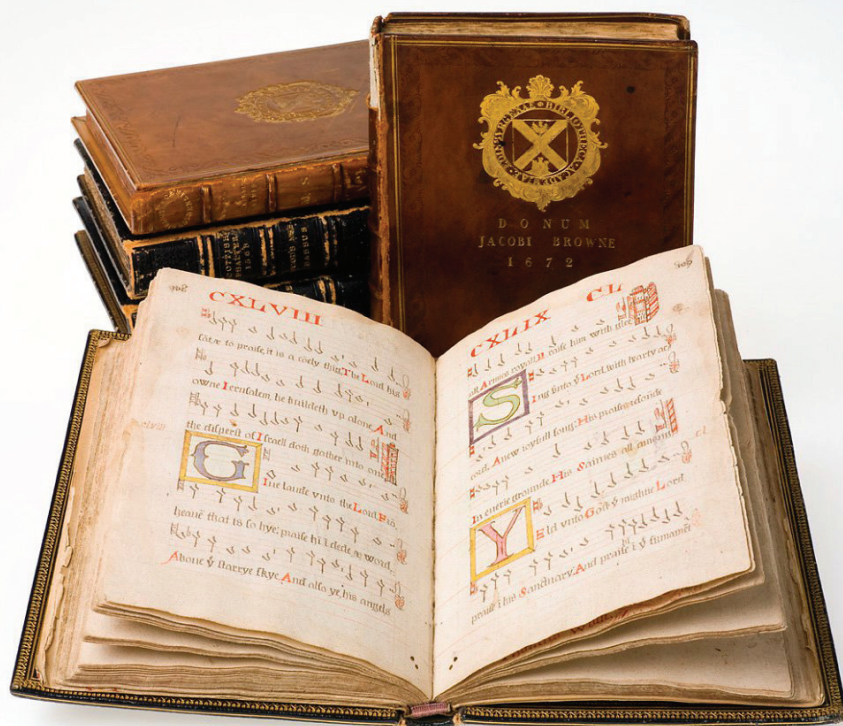 ACADEMIAE EDINBURGENAE BIBLIOTHECA
DONUM
JACOBI BROWNE
1672
SCOTTISH
PSALTER
BASSUS
CXLVIII
to praise, it is a coely thing The Lord his
owne Ierusalem, he buildeth vp alone And
the disperst of Israell doth gather into one
Giue laude vnto the Lord Fro
heauē that is so hye praise hī ī dede & word
Aboue yͤ starrye skye And also ye, his angels
CXLIX CL
all Armies royall praise him with glee
Sing vnto yͤ Lord, with hearty ac
cord, A new ioyfull song: His praises resounde
In euerie grounde His Saintes all amonge
Yeld vnto God yͤ mightie Lord
praise ī his Sanctuary And praise ī yͤ firmamēt